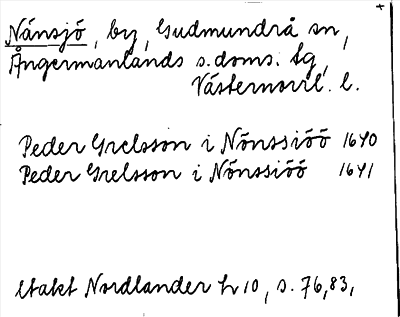 Nänsjö, by, Gudmundrå sn,
Ångermanlands s. doms. tg,
Västernorrl. l.
Peder Grelsson i Nönssiöö 1640
Peder Grelsson i Nönssiöö 1641
Utakt Nordlander h 10, s. 76, 83,